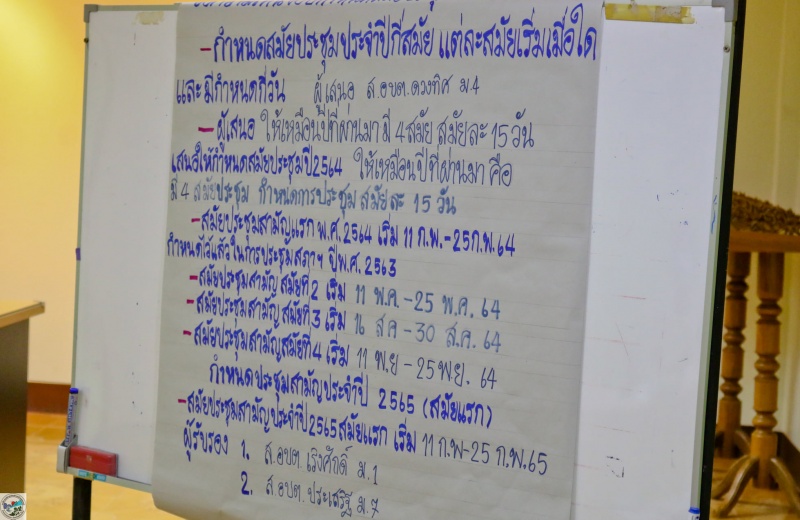 -กำหนดสมัยประชุมประจำปีกี่สมัย แต่ละสมัยเริ่มเมื่อใด
และมีกำหนดกี่วัน ผู้เสนอ ส.อบต.ดวงทิศ ม.4
-ผู้เสนอ ให้เหมือนปีที่ผ่านมา มี 4 สมัย สมัยละ 15 วัน
เสนอให้กำหนดสมัยประชุมปี2564 ให้เหมือนปีที่ผ่านมา คือ
มี 4 สมัยประชุม กำหนดการประชุม สมัยละ 15 วัน
-สมัยประชุมสามัญแรก พ.ศ.2564 เริ่ม 11 ก.พ.-25ก.พ.64
กำหนดไว้แล้วในการประชุมสภาฯ ปีพ.ศ. 2563
-สมัยประชุมสามัญ สมัยที่2 เริ่ม 11 พ.ค.-25 พ.ค. 64
-สมัยประชุมสามัญ สมัยที่3 เริ่ม 16 ส.ค-30 ส.ค. 64
-สมัยประชุมสามัญสมัยที่4 เริ่ม 11 พ.ย-25พย. 64
กำหนดประชุมสามัญประจำปี 2565 (สมัยแรก)
-สมัยประชุมสามัญประจำปี2565สมัยแรก เริ่ม 11 ก.พ-25 ก.พ.65
ผู้รับรอง 1. ส.อบต. เริงศักดิ์ ม.1
2. ส.อบต. ประเสริฐ ม.7